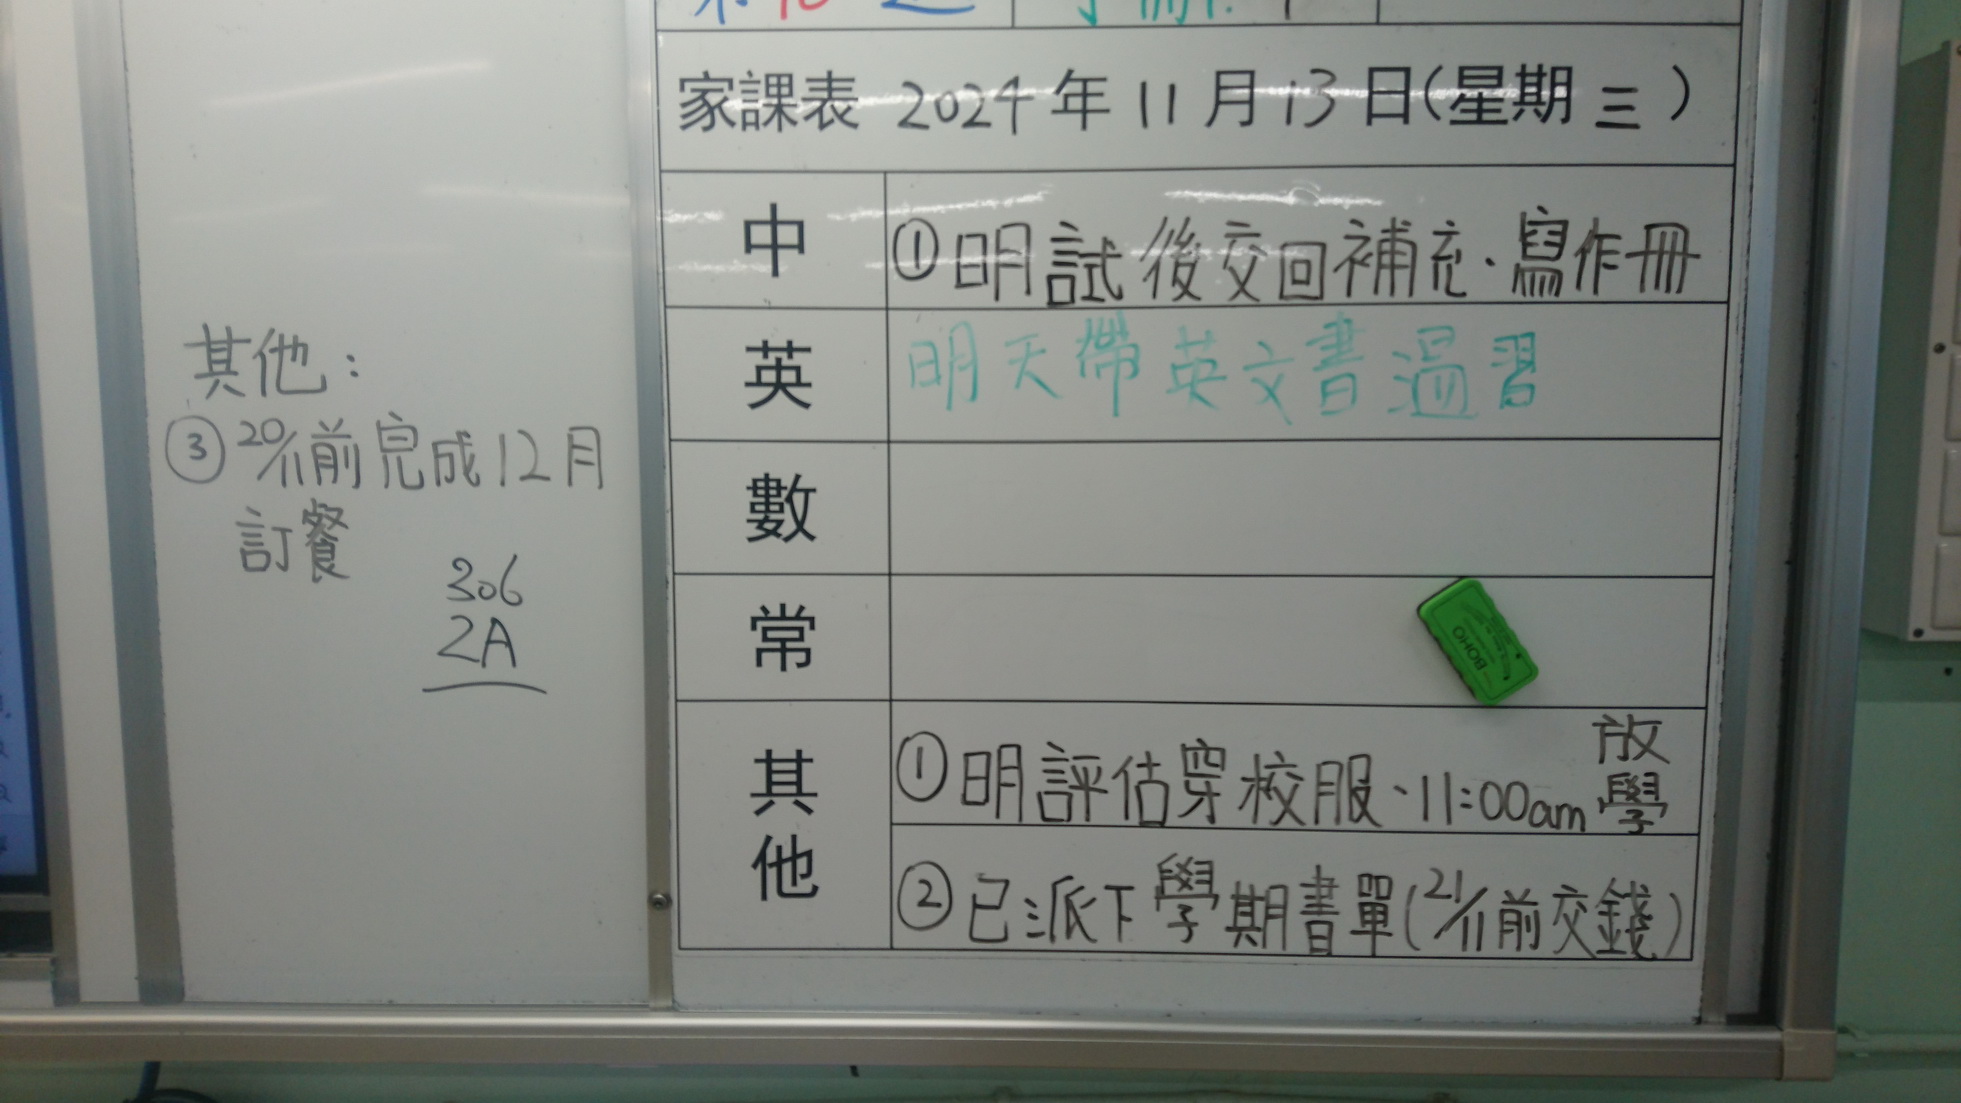 家課表 2024年11月13日(星期三)
中
①明試後交回補充、寫作冊
英
明天帶英文書溫習
數
常
BOHO
其他
①明評估穿校服、11:00am放學
②已派下學期書單(21/11前交錢)
其他:
③20/11前完成12月
訂餐
306
2A